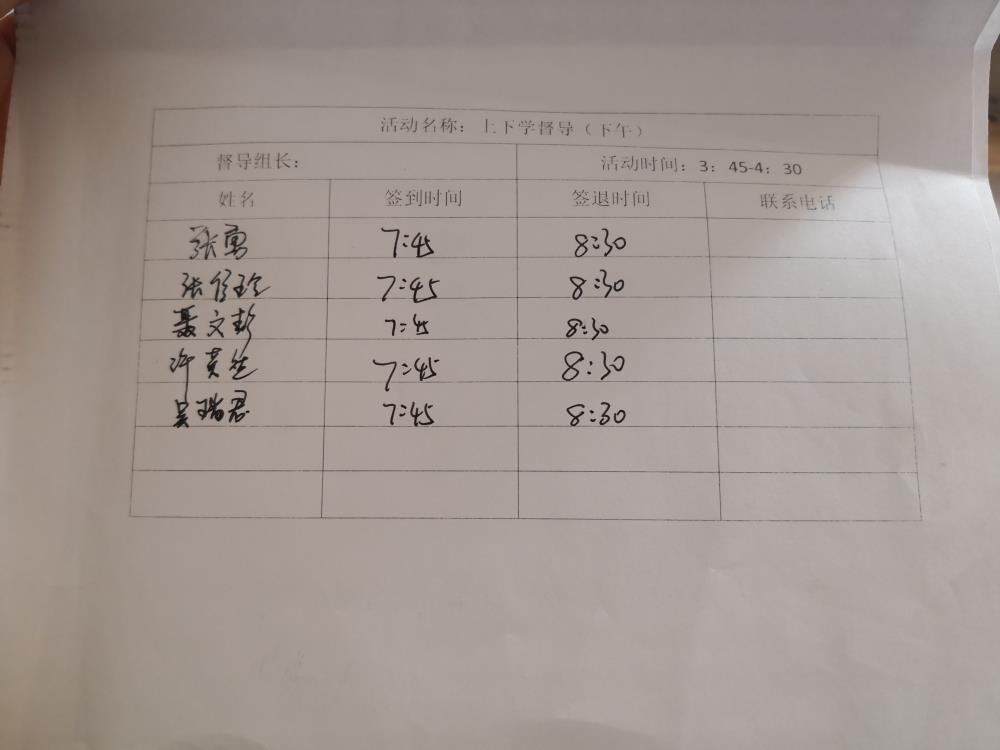 活动名称：上下学督导（下午）
督导组长： 活动时间：3：45-4：30
姓名 签到时间 签退时间 联系电话
张勇 7:45 8:30
张 7:45 8:30
聂文彭 7:45 8:30
许英生 7:45 8:30
吴瑞君 7:45 8:30